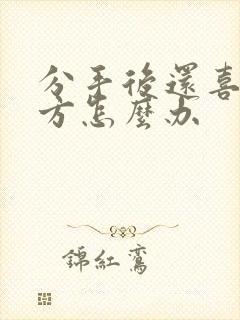 分手後還喜
方怎麼办
錦紅鸞